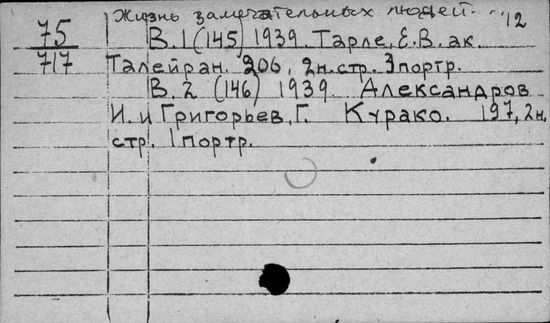 Жизнь замечательных людей. 12
75
717
В.1 (145) 1939. Тарле, Е.В. ак.
Талейран. 206, 2н.стр. 3 портр.
В.2 (146) 1939 Александров
И. и Григорьев, Г. Курако. 197, 2н.
стр. 1 портр.